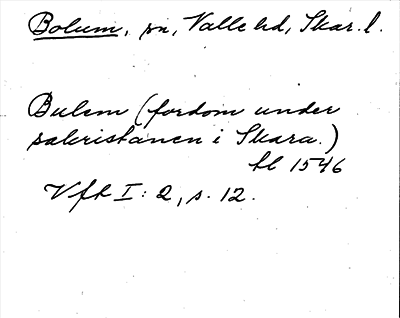 Bolum, sn, Valle hd, Skar. l.
Bulem (fordom under
sakristanen i Skara.)
hl 1546
Vfh I: 2, s. 12.